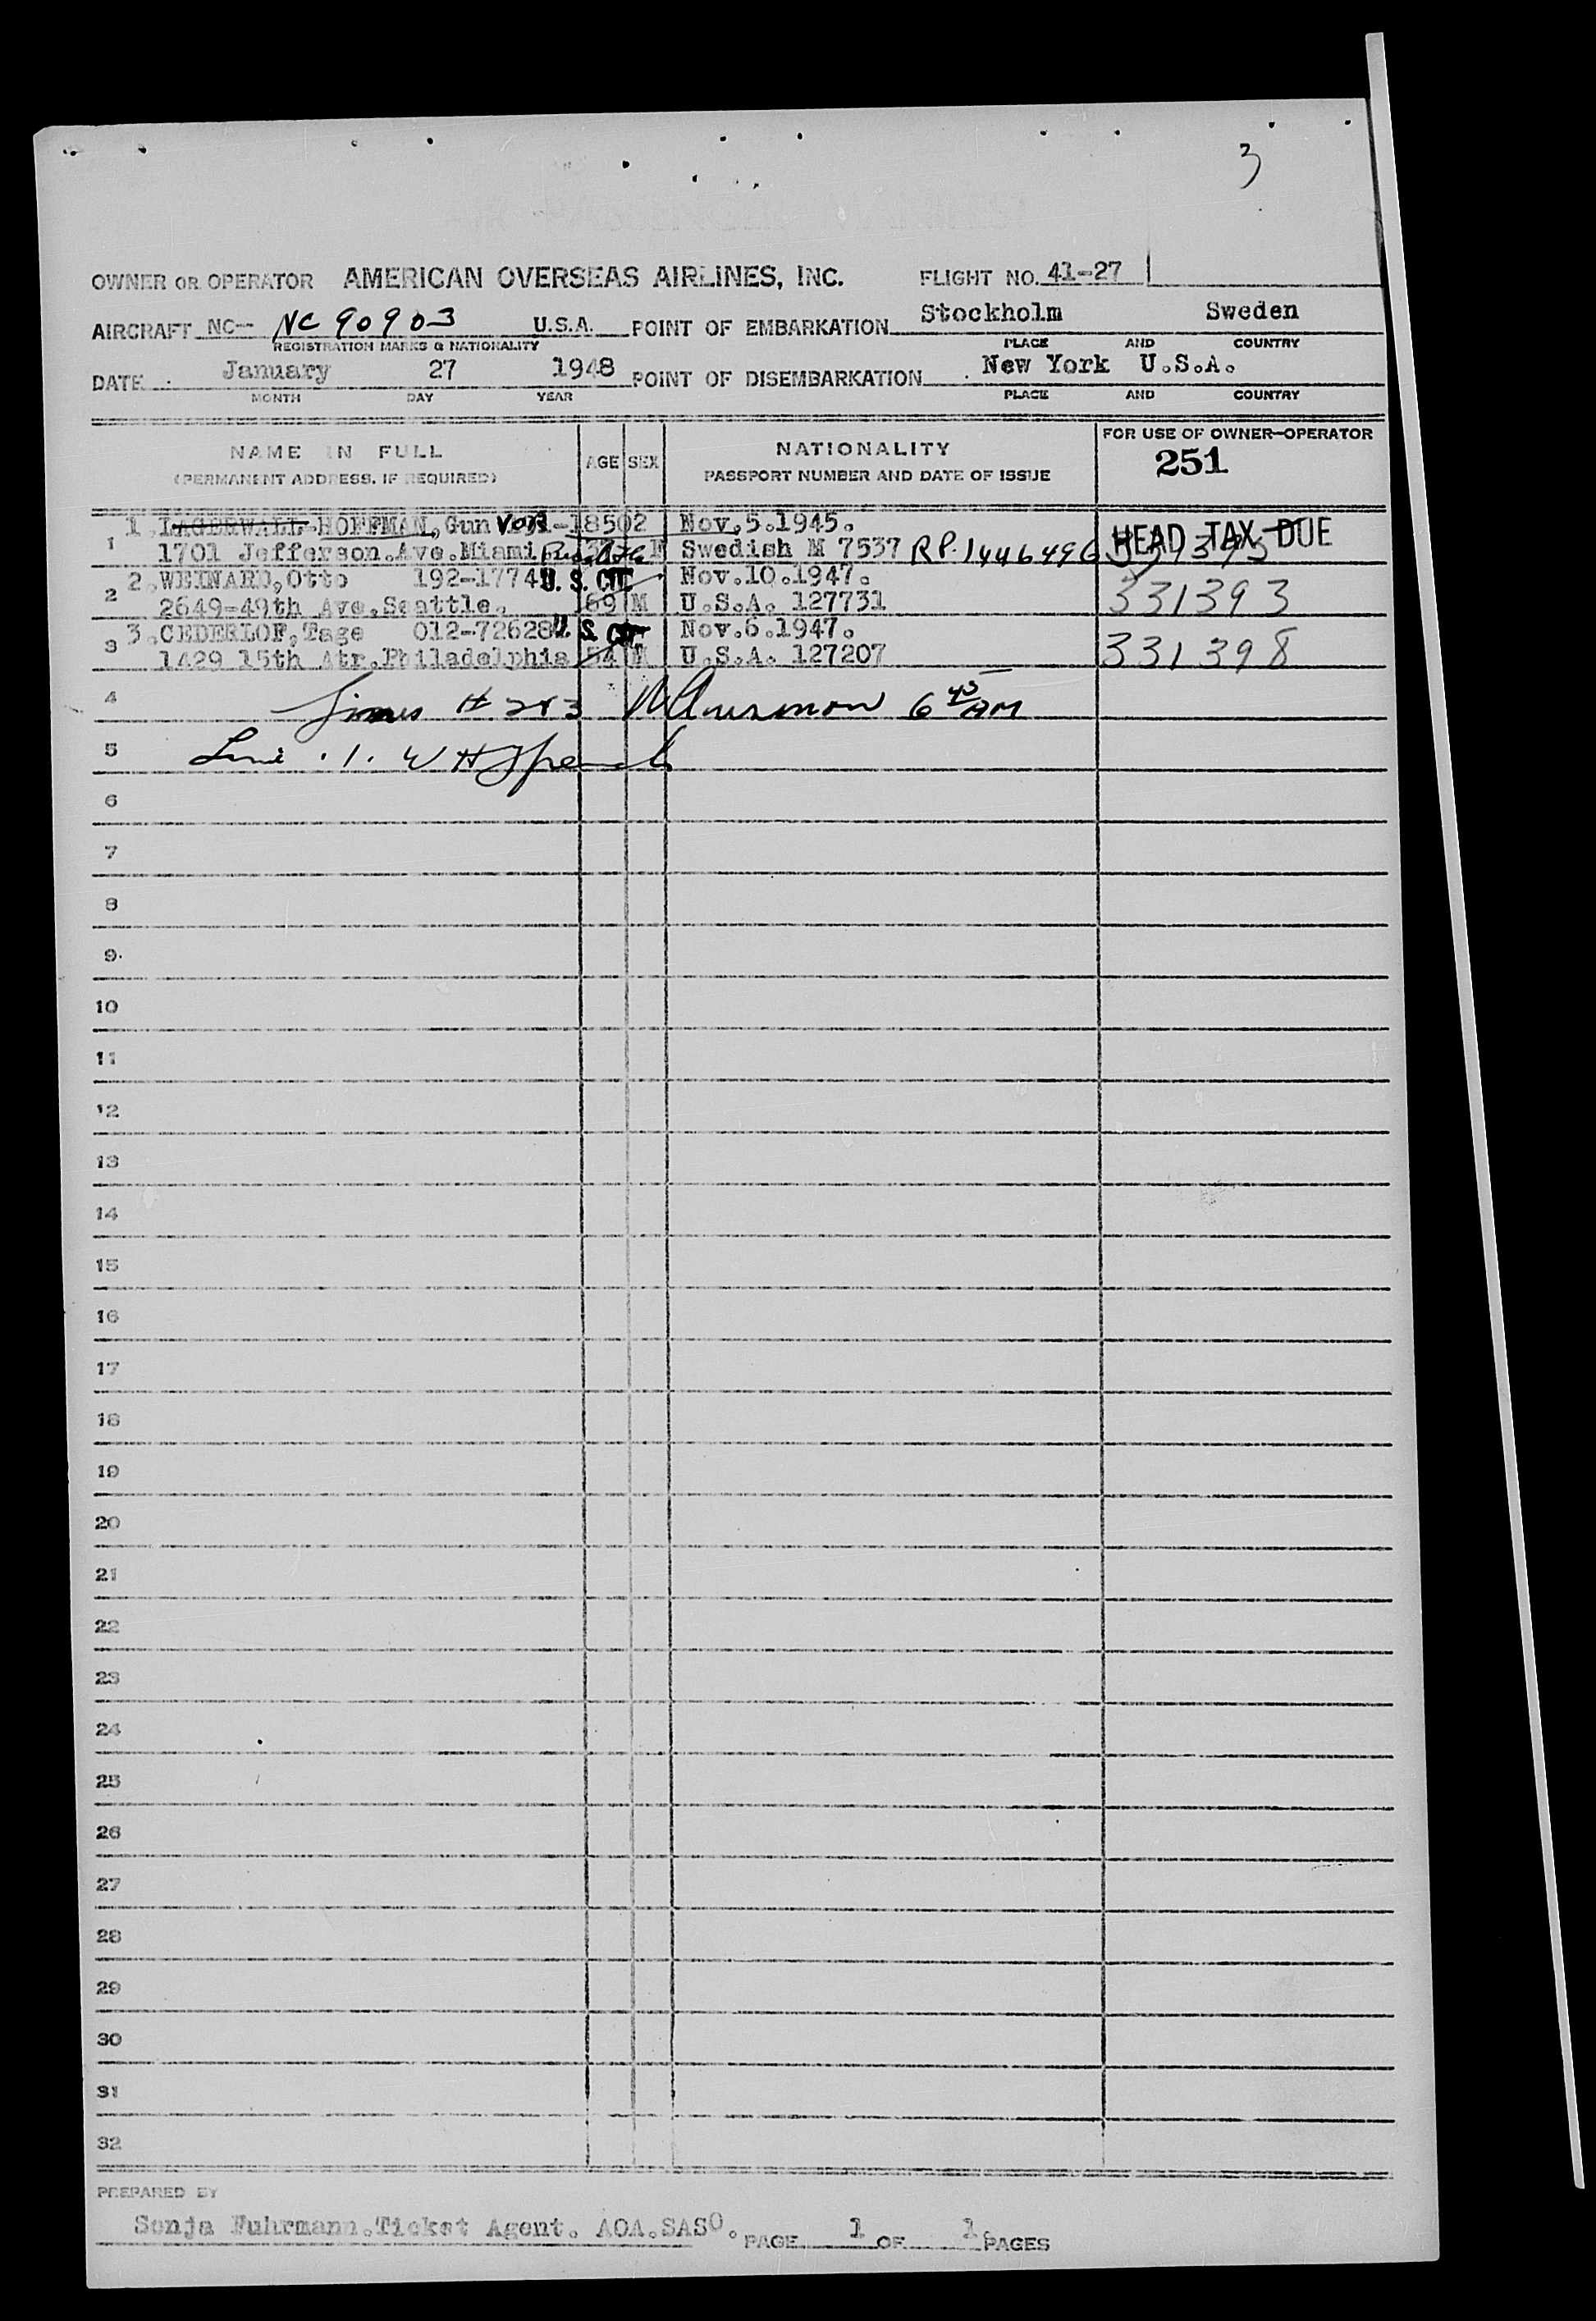 3
OWNER OR OPERATOR AMERICAN OVERSEAS AIRLINES, INC. FLIGHT NO. 41-27
AIRCRAFT NC- NC 90903 U.S.A. POINT OF EMBARKATION Stockholm Sweden
REGISTRATION MARKS & NATIONALITY PLACE AND COUNTRY
DATE January 27 1948 POINT OF DISEMBARKATION New York U.S.A.
MONTH DAY YEAR PLACE AND COUNTRY
NAME IN FULL AGE SEX NATIONALITY FOR USE OF OWNER-OPERATOR
(PERMANENT ADDRESS, IF REQUIRED) PASSPORT NUMBER AND DATE OF ISSUE 251
1 1. LAGERWALL HOFFMAN, Gun vor -18502 Nov.5.1945. HEAD TAX DUE
1701 Jefferson.Ave.Miami F Swedish M 7537 R.P. 1446496
2 2.WEINARD,Otto 192-1774 U.S. CIT. Nov.10.1947.
2649-49th Ave.Seattle. 69 M U.S.A. 127731 331393
3 3.CEDERLOF,Tage 012-72628 U.S. CIT. Nov.6.1947.
1429 15th Atr.Philadelphia 54 M U.S.A. 127207 331398
4 # 283 6 45 AM
5 Line . 1. W H
6
7
8
9.
10
11
12
13
14
15
16
17
18
19
20
21
22
23
24
25
26
27
28
29
30
31
32
PREPARED BY
Sonja Fuhrmann.Ticket Agent. AOA.SASO. PAGE 1 OF 1. PAGES